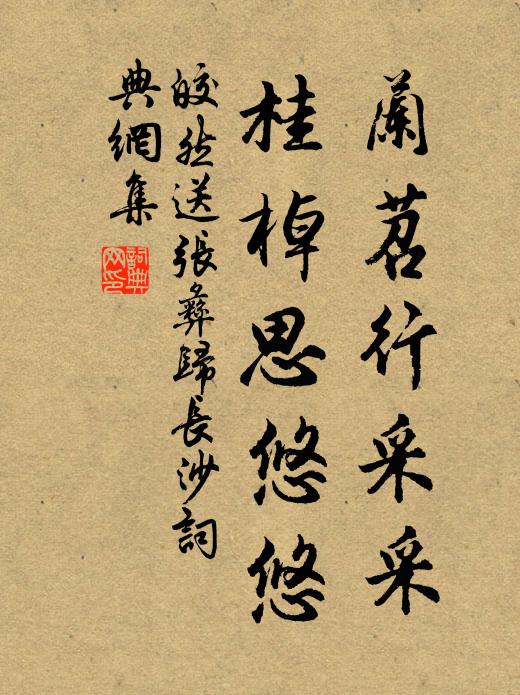 蘭苕行采采
桂棹思悠悠
皎然送張彝歸長沙詞
典網集
詞典网印